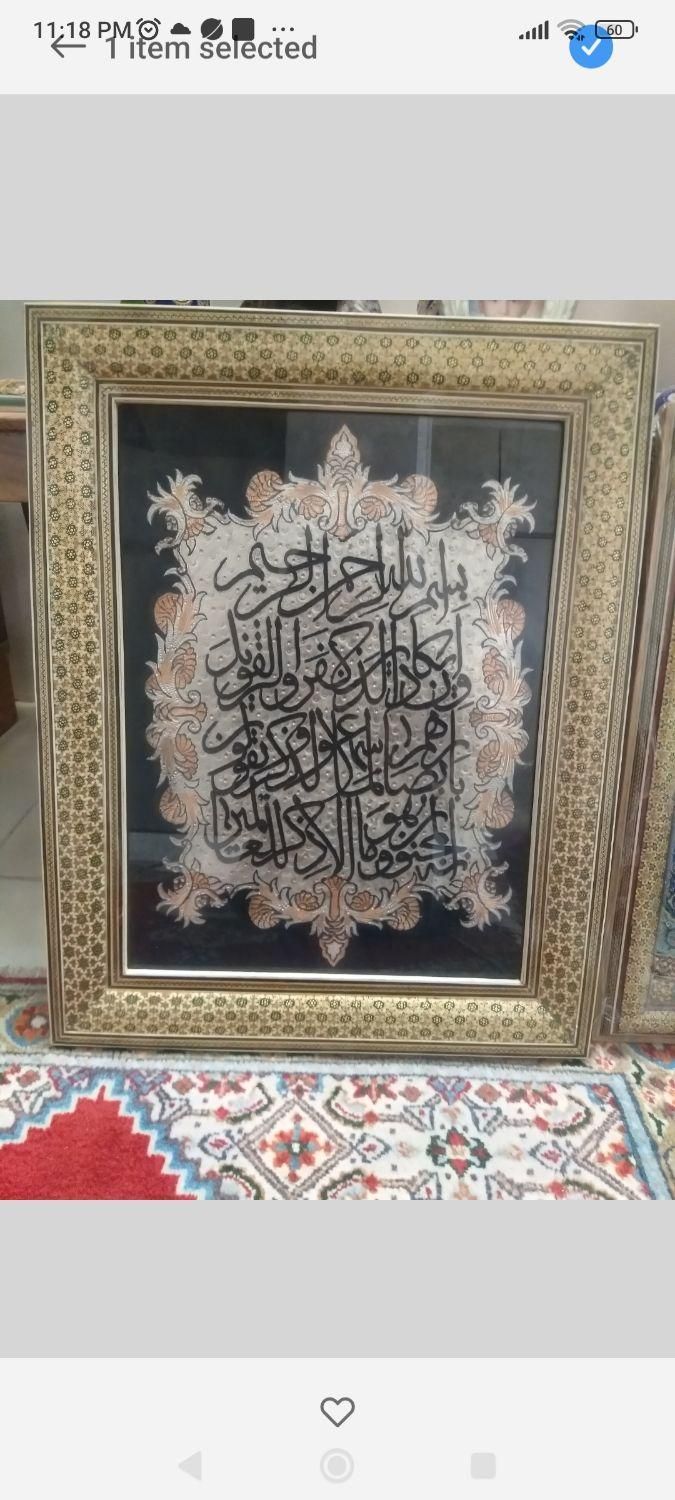 11:18 PM
60
1 item selected
بسم الله الرحمن الرحيم
وان يكاد الذين كفروا ليزلقونك
بابصارهم لما سمعوا الذكر و يقولون
انه لمجنون وما هو الا ذكر للعالمين